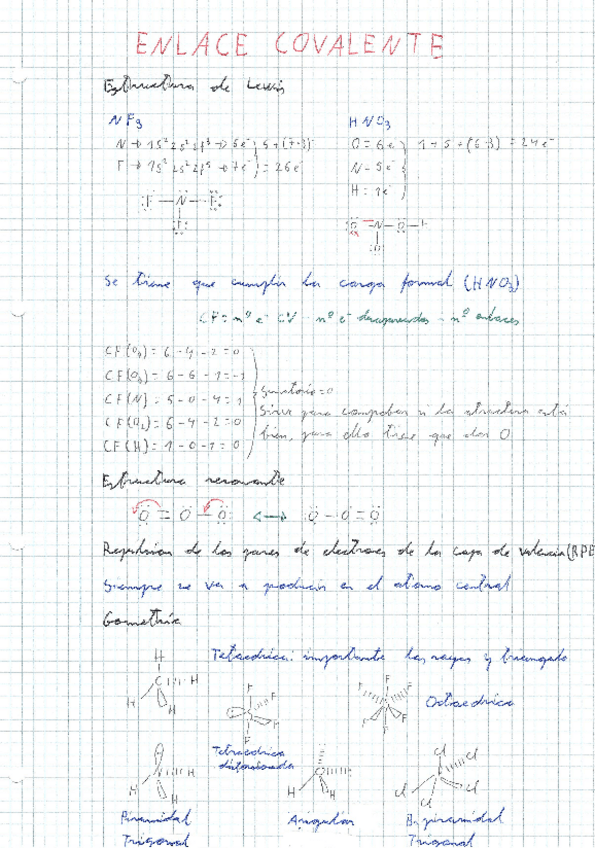 ENLACE COVALENTE
Estructura de Lewis
NF3 HNO3
N → 1s² 2s² 2p³ → 5e⁻ } 5 + (7·3) O = 6e⁻ } 1 + 5 + (6·3) = 24e⁻
F → 1s² 2s² 2p⁵ → 7e⁻ } = 26e⁻ N = 5e⁻
H = 1e⁻
F — N — F
F
O = N — O — H
O
Se tiene que cumplir la carga formal (HNO3)
CF = nº e⁻ CV - nº e⁻ desapareados - nº enlaces
CF(O3) = 6 - 4 - 2 = 0
CF(O3) = 6 - 6 - 1 = -1
CF(N) = 5 - 0 - 4 = 1
CF(O2) = 6 - 4 - 2 = 0
CF(H) = 1 - 0 - 1 = 0
Sumatorio = 0
Sirve para comprobar si la estructura está
bien, para ello tiene que dar 0
Estructura resonante
O = O — O ↔ O — O = O
Repulsión de los pares de electrones de la capa de valencia (RPE
Siempre se va a producir en el átomo central
Geometría
H
C H
H H
Tetraédrica: importante las rayas y triangulo
F F F F
F F F F F
Octaedrica
Tetraedrica
distorsionada
H
H H
Cl Cl
Cl Cl
Cl
Piramidal Angular Bipiramidal
Trigonal Trigonal